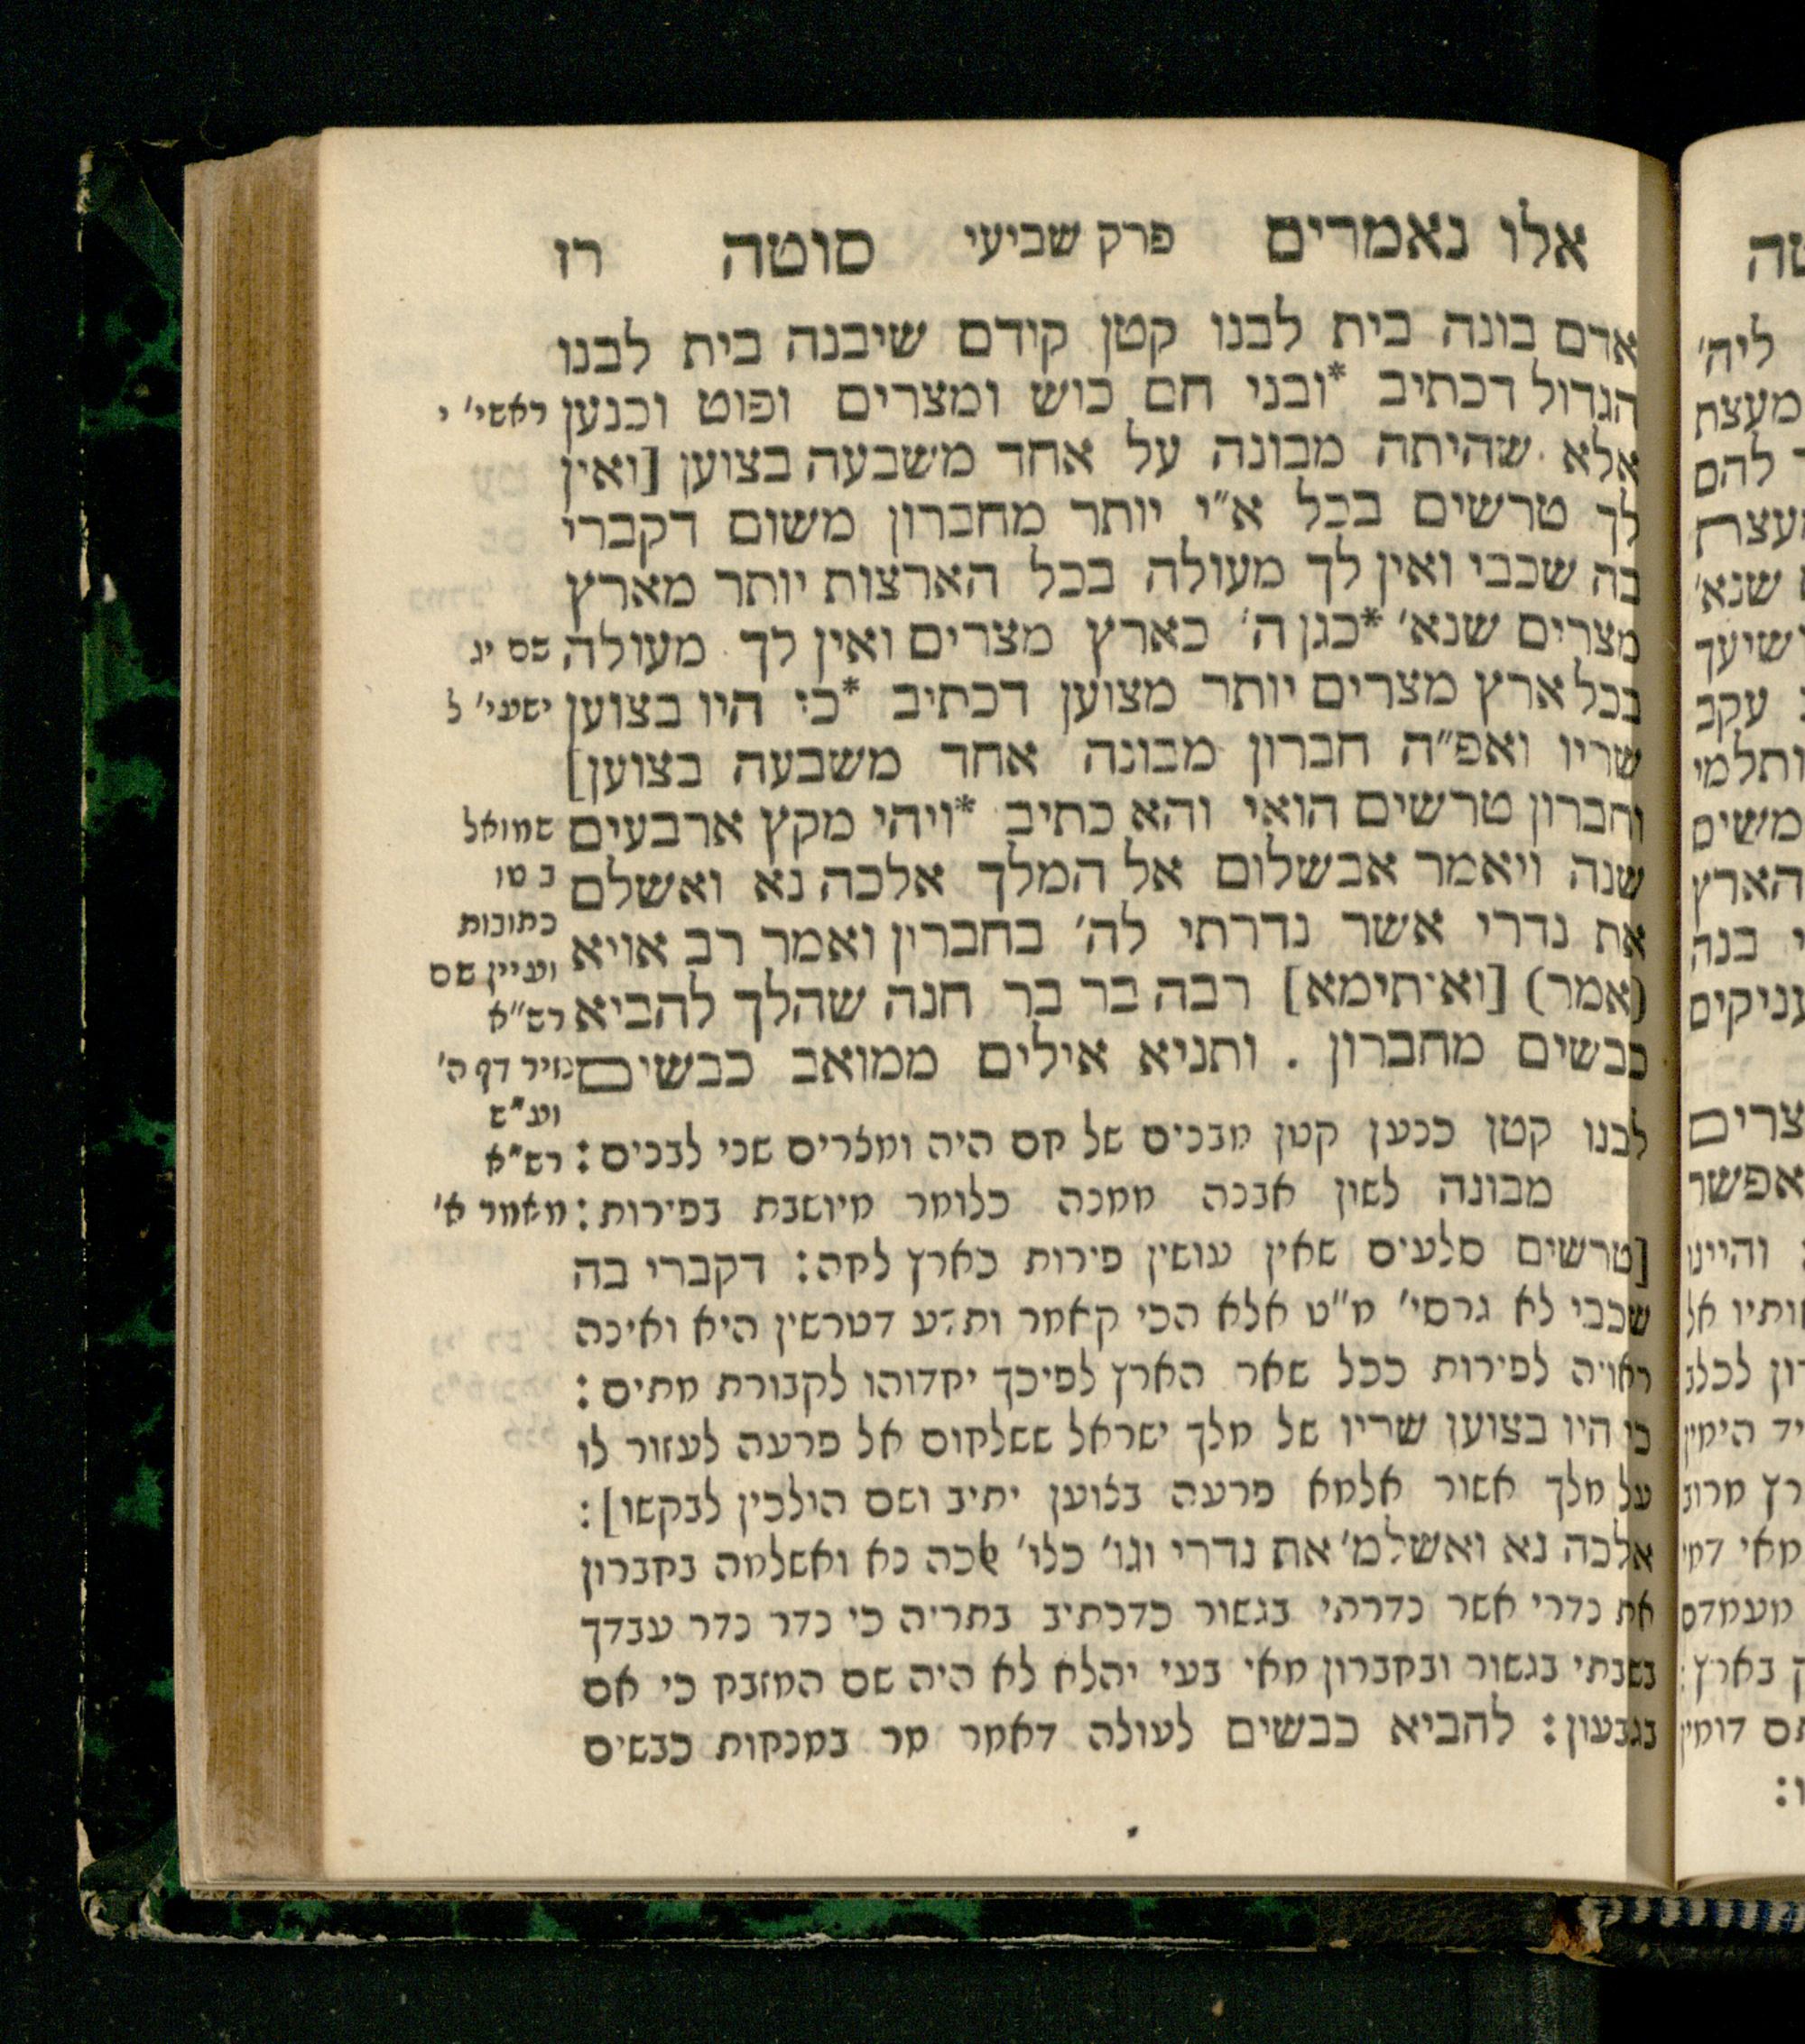 אלו נאמרים פרק שביעי סוטה רז
אדם בונה בית לבנו קטן קידם שיבנה בית לבנו
הגדול דכתיב *ובני חם כוש ומצרים ופוט וכנען
אלא שהיתה מבונה על אחד משבעה בצוען [ואין
לך טרשים בכל א״י יותר מחברון משום דקברי
בה שכבי ואין לך מעולה בכל הארצות יותר מארץ
מצרים שנא׳ *כגן ה׳ כארץ מצרים ואין לך מעולה
בכל ארץ מצרים יותר מצוען דכתיב *כי היו בצוען
שריו ואפ״ה חברון מבונה אחד משבעה בצוען]
וחברון טרשים הואי והא כתיב *ויהי מקץ ארבעים
שנה ויאמר אבשלום אל המלך אלכה נא ואשלם
את נדרי אשר נדרתי לה׳ בחברין ואמר רב אויא
(אמר) [ואיתימא] רבה בר בר חנה שהלך להביא
כבשים מחברון . ותניא אילים ממואב כבשים
לבנו קטן כנען קטן מבנים של חם היה ומצרים שני לבנים :
מבונה לשון אבנה ממנה כלומר מיושבת בפירות :
[טרשים סלעים שאין עושין פירות כארץ לחה : דקברי בה
שכבי לא גרסי׳ מ״ט אלא הכי קאמר ותדע דטרשין היא ואינה
ראויה לפירות ככל שאר הארץ לפיכך יחדוהו לקבורת מתים :
כי היו בצוען שריו של מלך ישראל ששלחום אל פרעה לעזור לו
על מלך אשור אלמא פרעה בצוען יתיב ושם הולכין לבקשו] :
אלכה נא ואשלמ׳ את נדרי וגו׳ כלי׳ אלכה נא ואשלמה בחברון
את נדרי אשר נדרתי בגשור כדכתיב בתריה כי נדר נדר עבדך
בשבתי בגשור ובחברון מאי בעי יהלא לא היה שם המזבח כי אם
בגבעון : להביא כבשים לעולה דאמר מר במנחות כבשים
ראשי׳ י
שם יג
ישעי׳ ל
שמואל
ב טו
כתובות
ועיין שם
רש״א
מיר דף ה׳
וע״ש
רש״א
מאמר א׳
טה
ליה׳
מעצת
להם
שנא׳
עקב
ותלמי
הארץ
בנה
עניקים
צרים
אפשר
והיינו
ותיו אל
מאי
בארץ